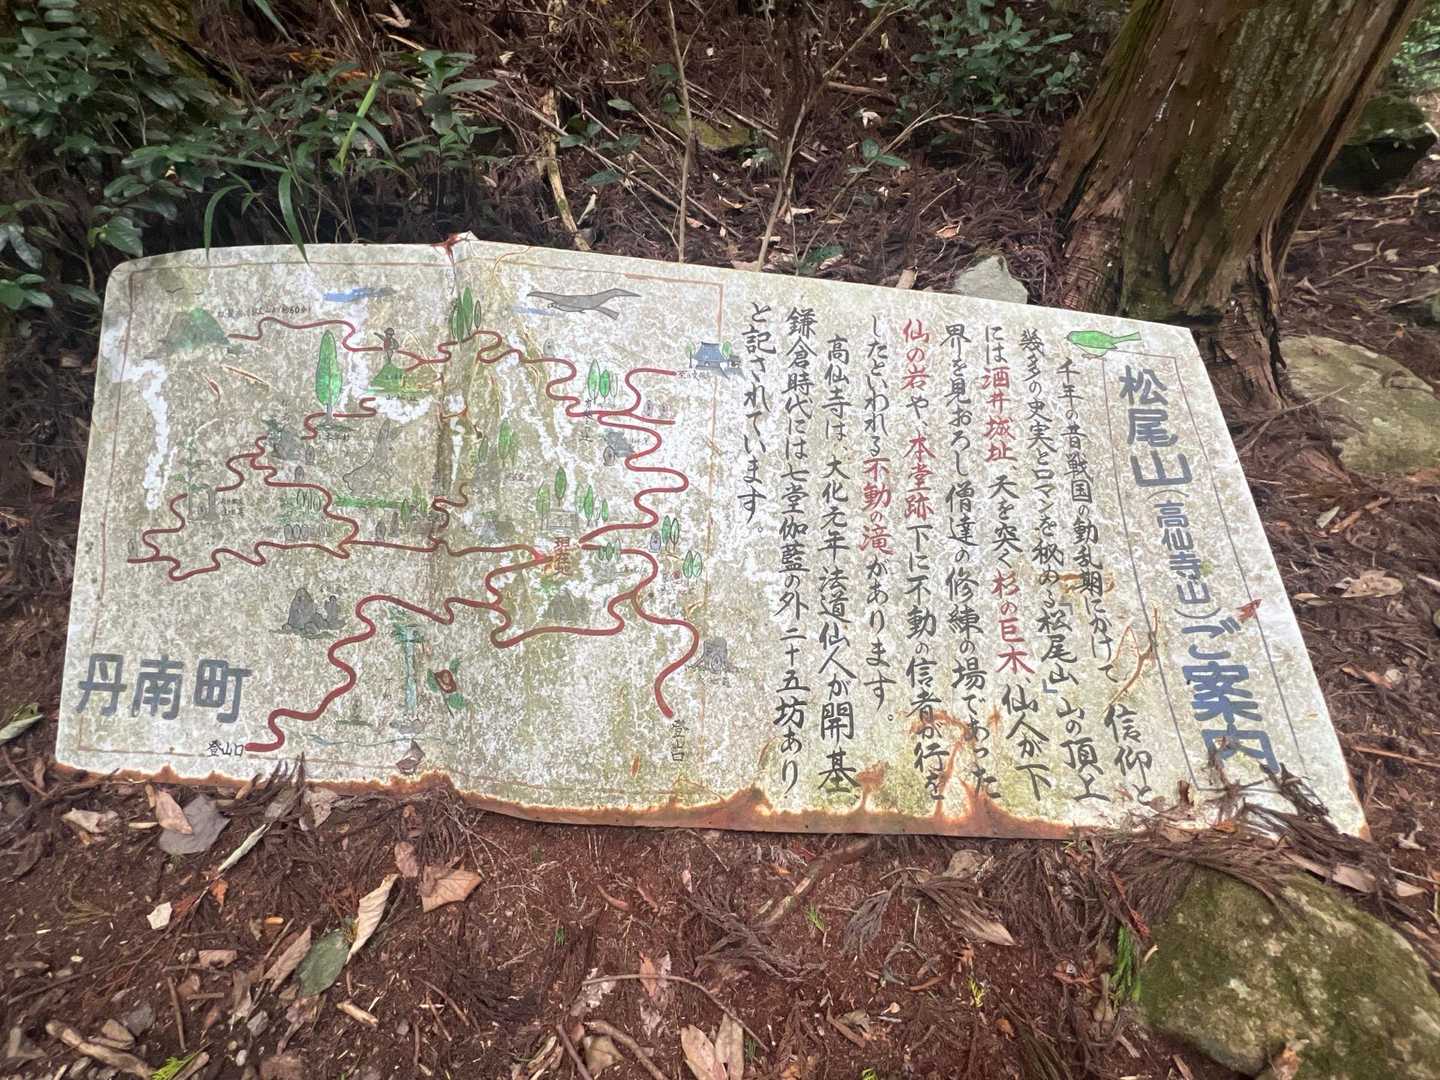 松尾山（高仙寺山）ご案内
千年の昔戦国の動乱期にかけて 信仰と
幾多の史実とロマンを秘める「松尾山」山の頂上
には酒井城址、天を突く杉の巨木、仙人が下
界を見おろし僧達の修練の場であった
仙の岩や、本堂跡下に不動の信者が行を
したといわれる不動の滝があります。
高仙寺は、大化元年法道仙人が開基
鎌倉時代には七堂伽藍の外二十五坊あり
と記されています。
登山口
現在地
丹南町
登山口